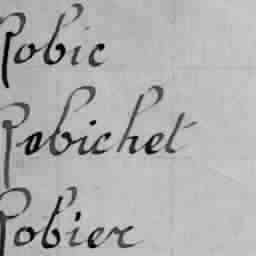 Robic
Robichet
Robier